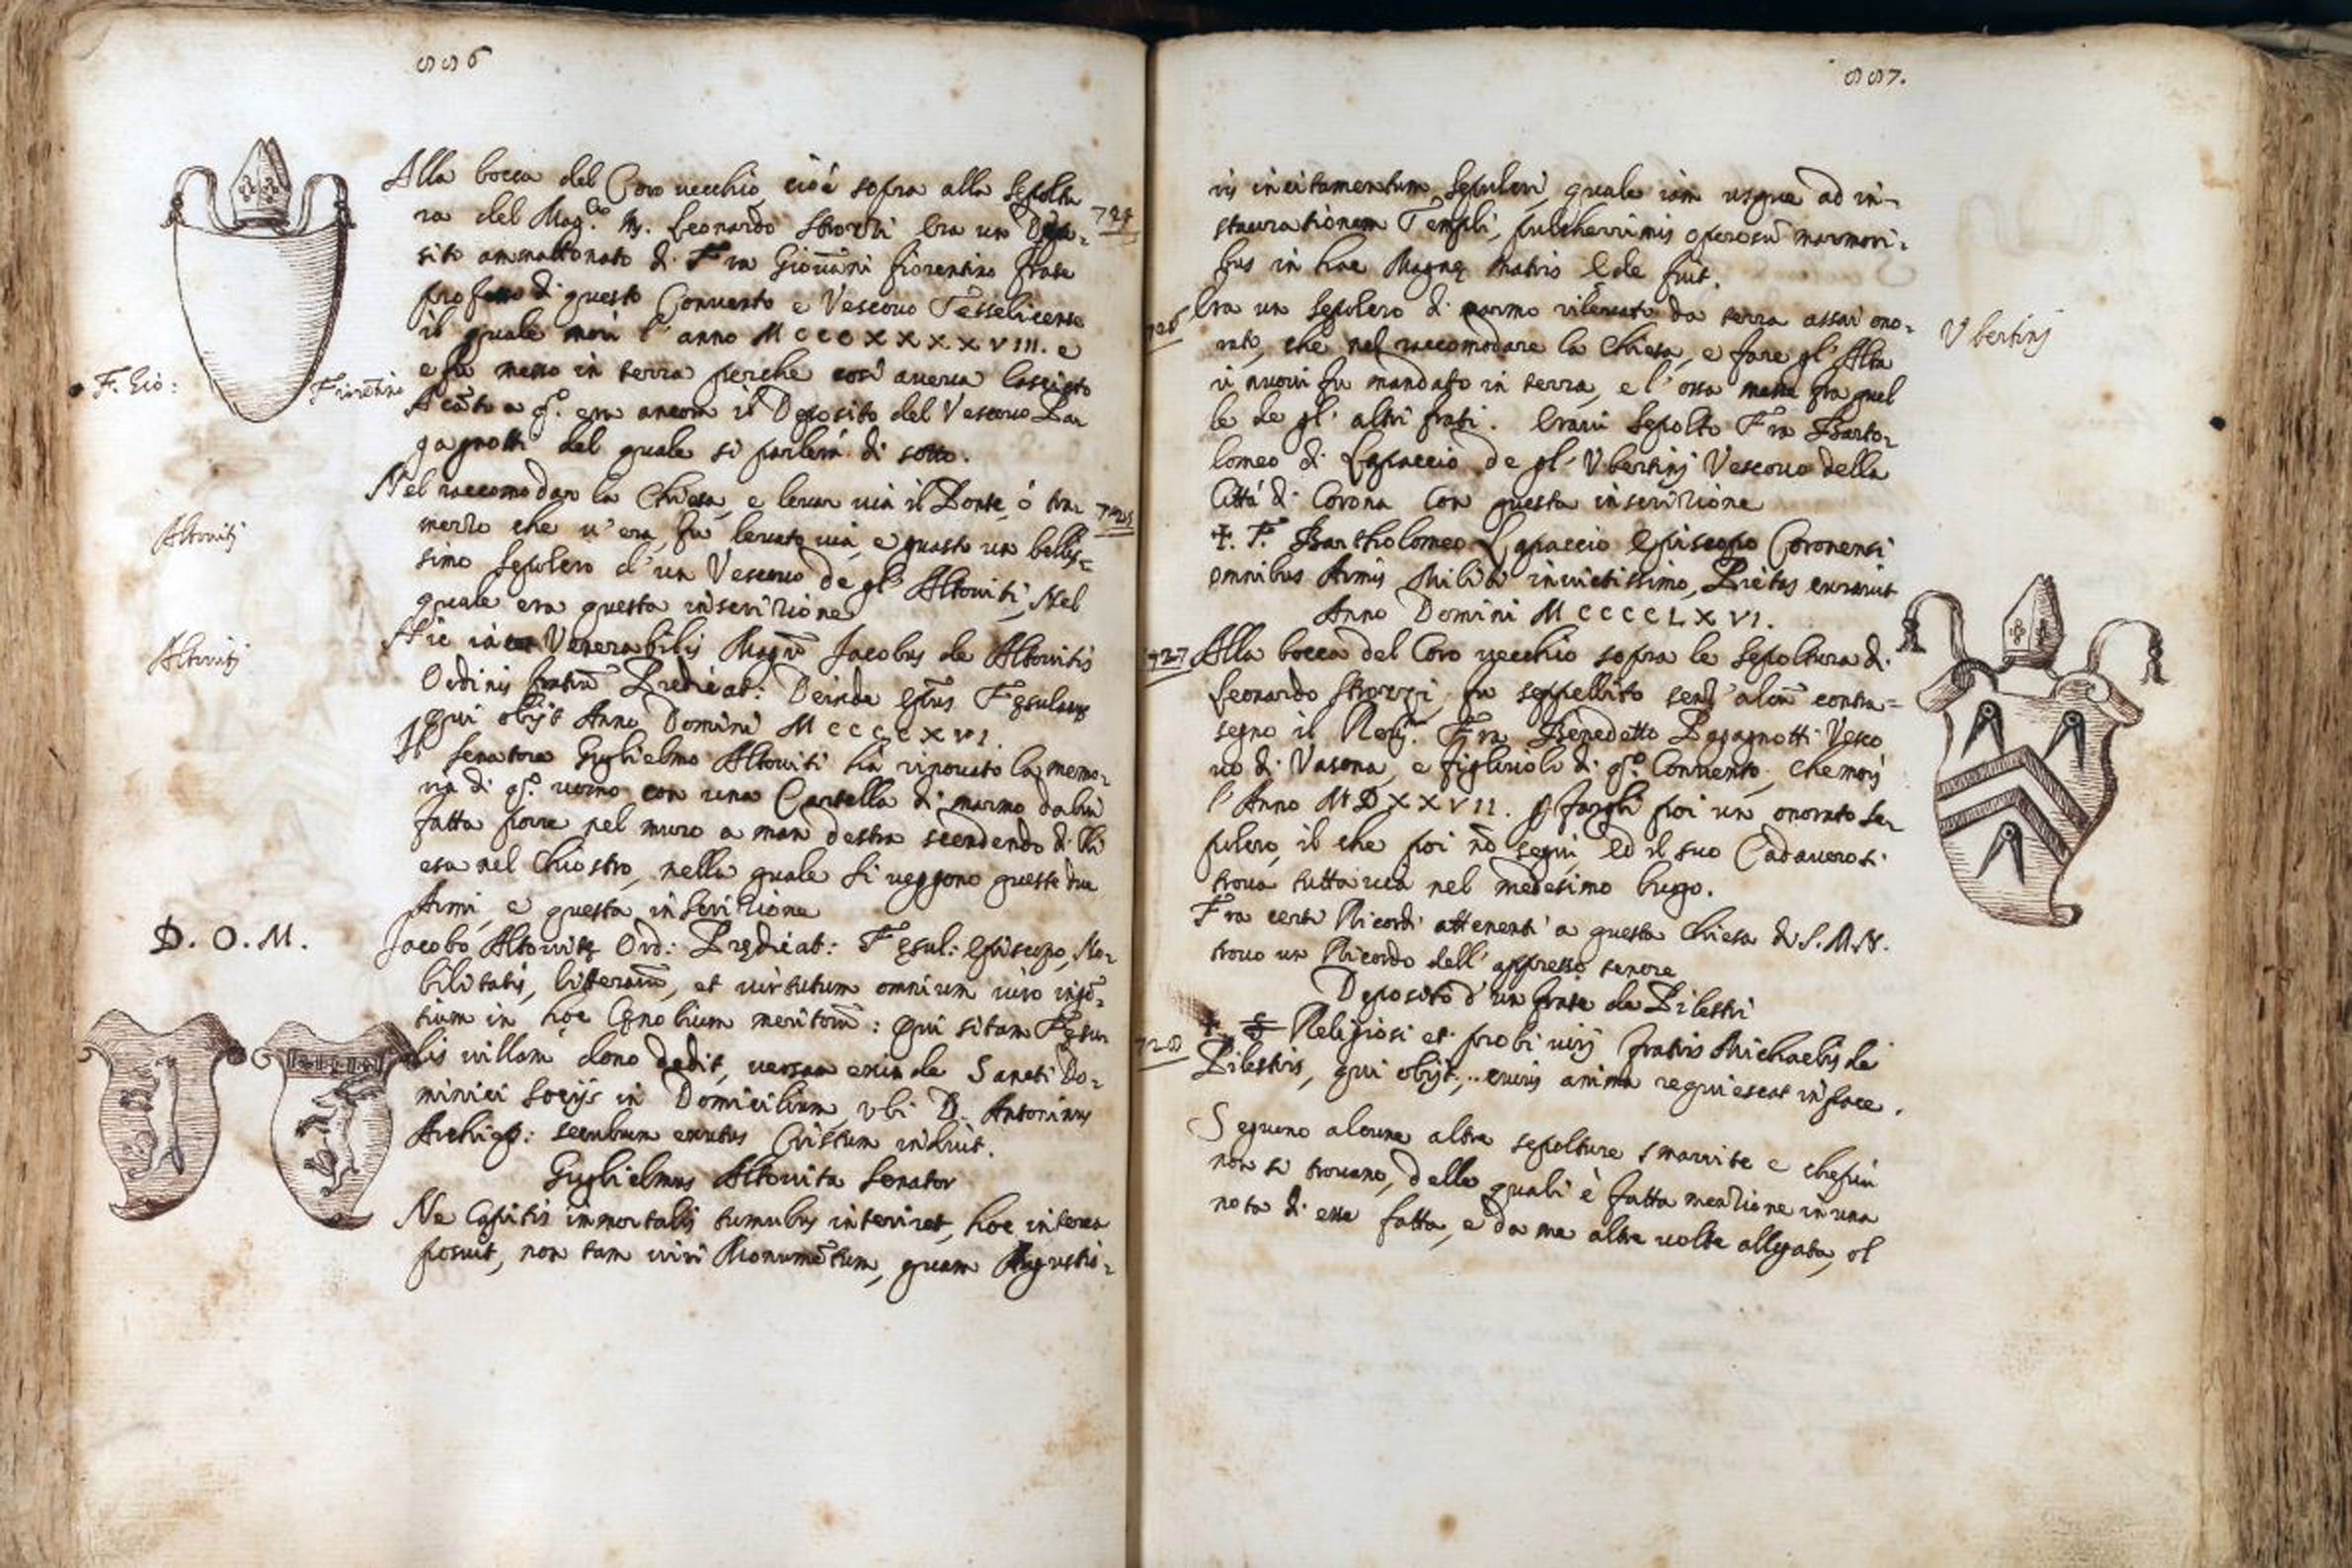 556
Alla bocca del Coro vecchio, cioè sopra alla Sepoltu
ra del Mag.co M. Leonardo Strozzi era un Depo-
724
sito ammattonato di Fra Giovāni fiorentino frate
professo di questo Convento e Vescovo Tesselicense
il quale morì l'anno MCCCXXXXVIII. e
e fu messo in terra perche così aveva lasciato
F. Gio: Fiorētino
Acāto a q.o era ancora il Deposito del Vescovo Pa
gagnotti del quale si parlerà di sotto.
Nel raccomodar la Chiesa, e levar via il Ponte, ò tra-
725
mezzo che v'era, fu levato via, e guasto un bellis-
Altovitj
simo Sepolcro d'un Vescovo de gl'Altoviti, Nel
quale era questa inscrizione
Hic iacet Venerabilis Magr̄ Jacobus de Altovitis
Altovitj
Ordinis fratrū Predicat: Deinde Ep̄us Fesulanus
qui obijt Anno Domini MCCCCXVI.
Il Senatore Guglielmo Altoviti hà rinovato la memo-
ria di q.o uomo con una Cartella di marmo da lui
fatta porre nel muro a man destra scendendo di Chi
esa nel Chiostro, nella quale si veggono queste due
Armi, e questa inscrizione
D. O. M.
Jacobo Altovitę Ord: Prędicat: Fęsul: Episcopo, No-
bilitatis, litterarū, et virtutum omnium viro insō-
tium in hoc Cęnobium meritorū: qui sitam Fęsu
lis villam dono dedit, versam exinde Sancti Do-
minici Socijs in Domicilium, vbi D. Antoninus
Archiep: seculum exutus Cristum induit.
Guglielmus Altovita Senator
Ne Capitis immortalis tumulus interiret, hoc interea
posuit, non tam viri Monumētum, quam Augustio-
557.
ris incitamentum Sepulcri, quale iam usque ad in-
staurationem Templi, pulcherrimis operosū marmori-
bus in hac Magnę Matris Ęde fuit.
726
Era un Sepolcro di marmo rilevato da terra assai ono-
Vbertinj
rato, che nel raccomodare la Chiesa, e fare gl'Alta
ri nuovi fu mandato in terra, e l'ossa messe fra quel
le de gl'altri frati. Eravi Sepolto Fra Barto-
lomeo di Lapaccio de gl'Vbertinj Vescovo della
Città di Corona con questa inscrizione
+. F. Bartholomeo Lapaccio Episcopo Coronensi
omnibus Armis Militi invictissimo, Pietas exaravit
Anno Domini MCCCCLXVI.
727
Alla bocca del Coro vecchio sopra le Sepoltura di
Leonardo Strozzi fu seppellito senz'alcū contra-
segno il Rev.mo Fra Benedetto Pagagnotti Vesco
vo di Vasona, e figliuolo di q.o Convento, che morì
l'Anno MDXXVII. p fargli poi un onorato Se-
pulcro, il che poi nō seguì ed il suo Cadavero si
trova tuttavia nel medesimo luogo.
Fra certi Ricordi attenenti a questa Chiesa di S. M. N.
trovo un Ricordo dell'appresso tenore
Deposito d'un frate de Pilestri
728
+. S Religiosi et probi virj fratris Michaelis de
Pilestris, qui obijt... cuius anima requiescat in pace.
Seguono alcune altre sepolture smarrite e che più
non si trovano, delle quali è fatta menzione in una
nota di esse fatta, e da me altre volte allegata, ol